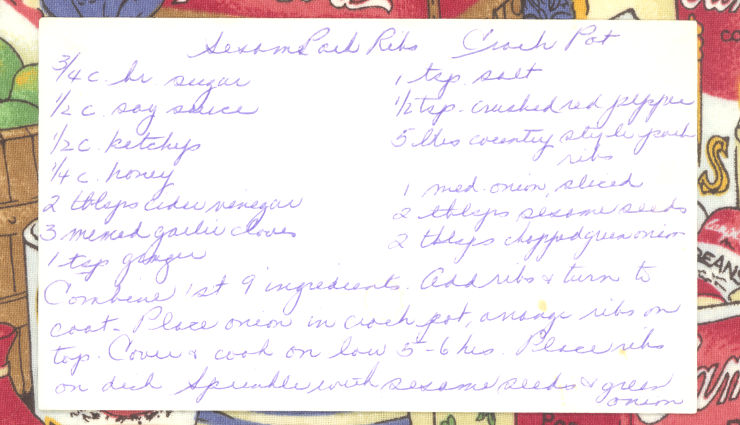 Sesame Pork Ribs Crock Pot
3/4 c. br sugar
1/2 c. soy sauce
1/2 c. ketchup
1/4 c. honey
2 tblsps cider vinegar
3 minced garlic cloves
1 tsp ginger
1 tsp. salt
1/2 tsp. crushed red pepper
5 lbs country style pork
ribs
1 med. onion, sliced
2 tblsps sesame seeds
2 tblsps chopped green onion
Combine 1st 9 ingredients. Add ribs & turn to
coat. Place onion in crock pot, arrange ribs on
top. Cover & cook on low 5-6 hrs. Place ribs
on dish Sprinkle with sesame seeds & green
onion
S
BEANS